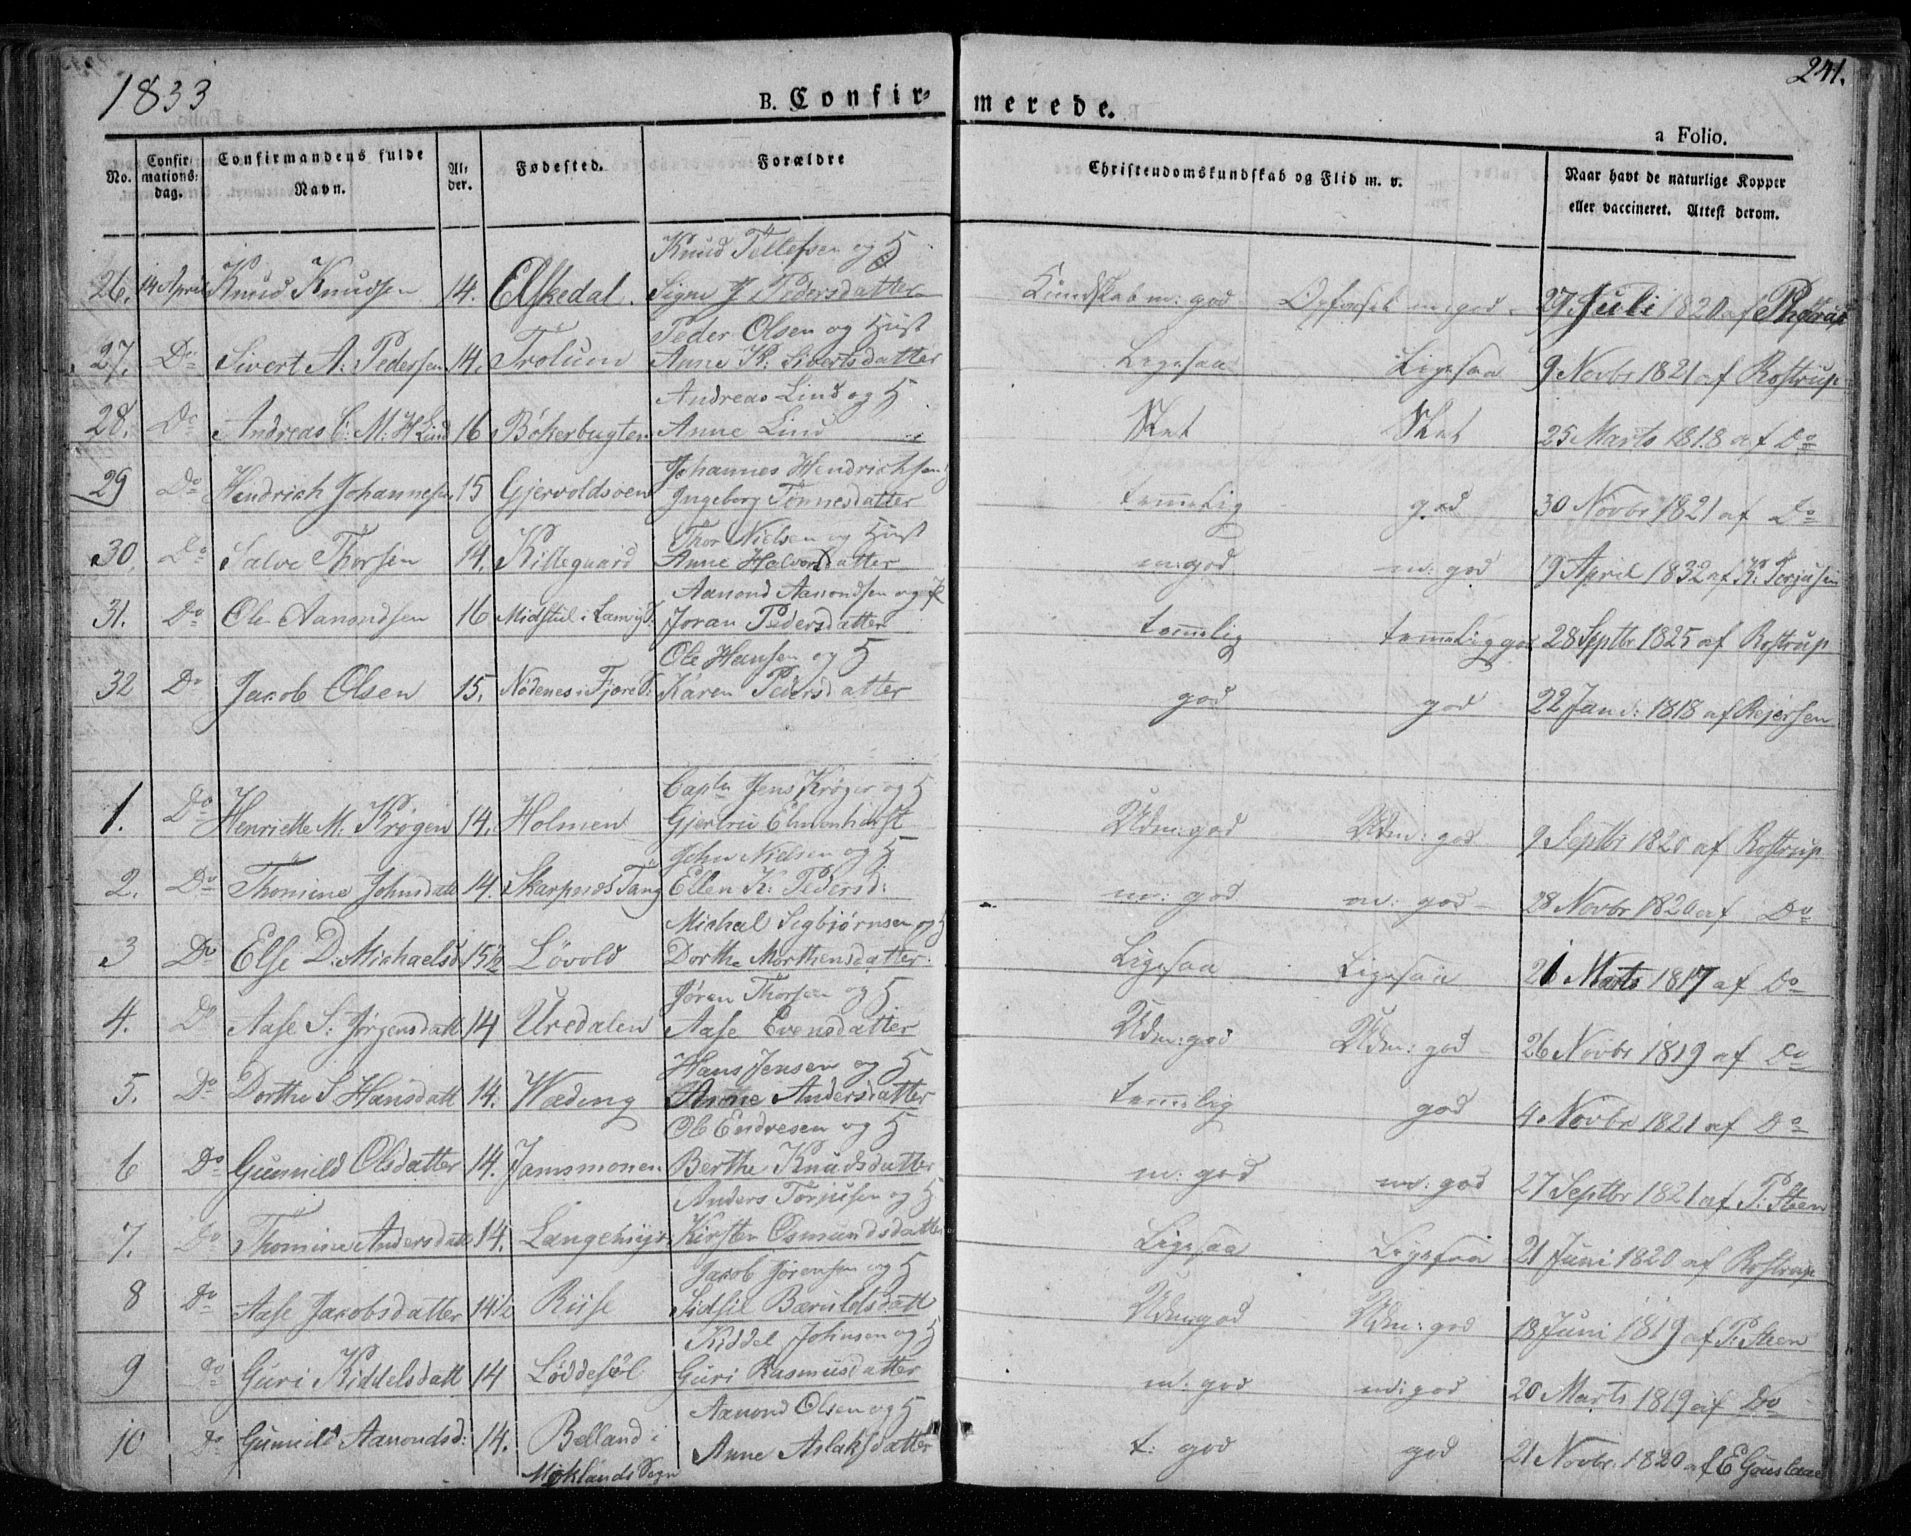 1833
B. Confirmerede.
241.
a Folio.
No.
Confirmations: dag.
Confirmandens fulde Navn.
Alder.
Fødested.
Forældre
Christendomskundskab og Flid m. v.
Naar havt de naturlige Kopper eller vaccineret. Attest derom.
Knud Tellefsen og H
26. 14 April Knud Knudsen 14. Elskedal. Signe J Pedersdatter Kundskab m: god Opførsel m: god 27 Juli 1820 af
Peder Olsen og Hust
27. Do Sivert A: Pedersen 14. Trolum Anne K: Sivertsdatter Ligesaa Ligesaa 9 Novbr 1821 af Rostrup
Andreas Lind og H
28. Do Andreas C: M: H Lind 16 Bökerbugten Anne Lind Slet Slet 25 Marts 1818 af Do
Johannes Hendrichsen
29 Do Hendrich Johannesen 15 Gjervoldsøen Ingeborg Tönnesdatter temelig god 30 Novbr 1821 af Do
Thor Nielsen og Hust
30. Do Salve Thorsen 14. Killegaard Anne Halvorsdatter m: god m: god 19 April 1832 af Terjusen
Aanond Aanondsen og H
31. Do Ole Aanondsen 16 Midstul i Joran Pedersdatter temelig temelig god 28 Septbr 1825 af Rostrup
Ole Hansen og H
32 Do Jacob Olsen 15. Nödenes i Fjære S: Karen Pedersdatter god god 22 Jand: 1818 af Rejersen
Captn Jens Krøger og H
1. Do Henriette M: Krøgen 14. Holmen Gjertru Elmenhorst Udm: god Udm: god 9 Septbr 1820 af Rostrup
John Nielsen og H
2. Do Thomine Johnsdatt 14. Skarpnæs Tang Ellen K: Pedersd: m: god m: god 28 Novbr 1820 af Do
Michael Sigbjørnsen og H
3 Do Else D: Michaelsd 15½ Løvold Dorthe Morthensdatter Ligesaa Ligesaa 21 Marts 1817 af Do
Jören Thorsen og H
4. Do Aase S: Jørgensdatt 14 Uredalen Aase Evensdatter Udm: god Udm: god 26 Novbr 1819 af Do
Hans Jensen og H
5. Do Dorthe S Hansdatt 14. Wæding Anne Andersdatter temelig god 4 Novbr 1821 af Do
Ole Endresen og H
6 Do Gunnild Olsdatter 14. Jamsmonen Berthe Knudsdatter m: god m: god 27 Septbr 1821 af P: Steen
Anders Torjusen og H
7. Do Thomine Andersdatt 14. Langemyr Kirsten Osmundsdatter Ligesaa Ligesaa 21 Juni 1820 af Rostrup
Jacob Jörensen og H
8 Do Aase Jacobsdatter 14½ Riise Sidsil Baruldsdatt Udm: god Udm: god 18 Juni 1819 af P: Steen
Kiddel Johnsen og H
9 Do Guri Kiddelsdatt 14 Løddesøl Guri Rasmusdatter m: god m: god 20 Marts 1819 af Do
Aanond Olsen og H
10 Do Gunnild Aanondsd: 14. Belland i Anne Aslaksdatter t: god god 21 Novbr. 1820 af E
Möklands Sogn